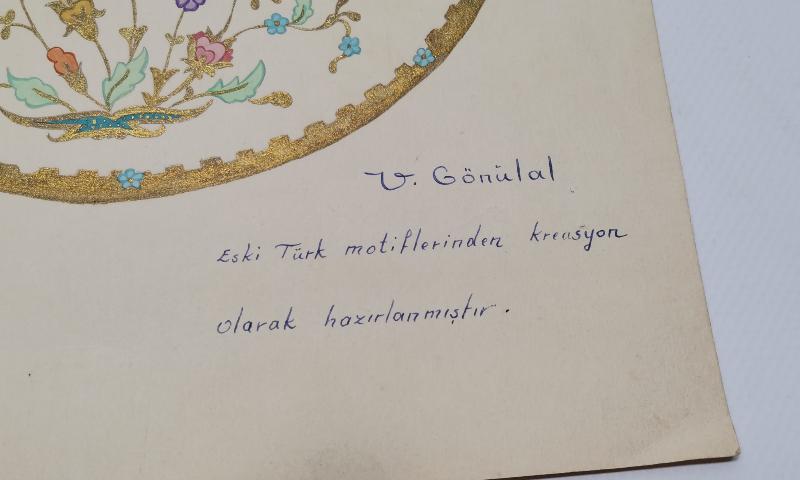 V. Gönülal
Eski Türk motiflerinden kreasyon
olarak hazırlanmıştır.